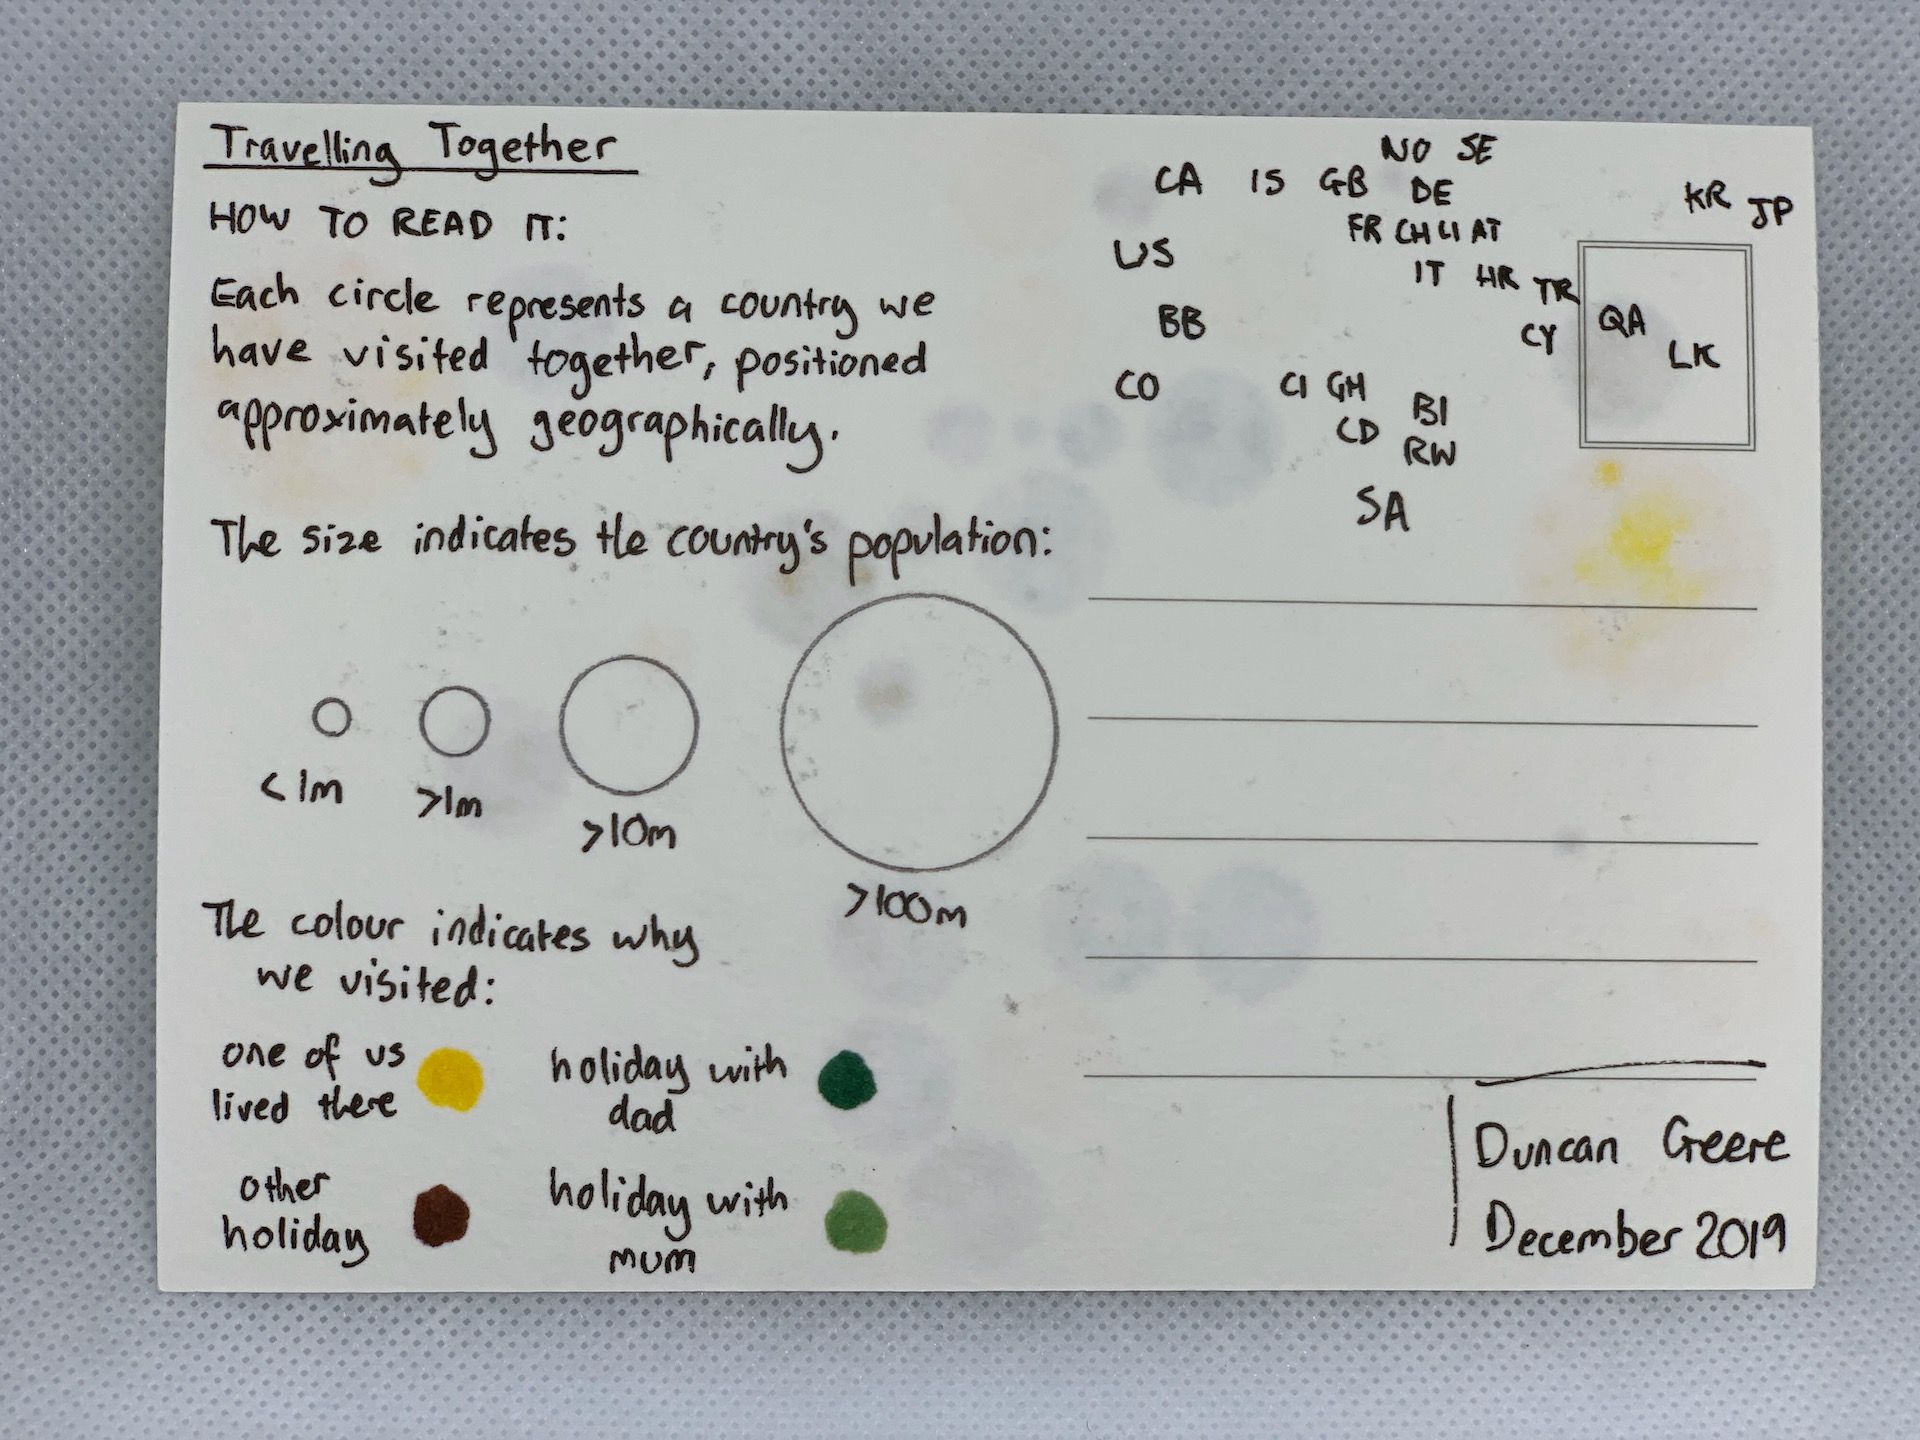 Travelling Together
HOW TO READ IT:
Each circle represents a country we
have visited together, positioned
approximately geographically.
The size indicates the country's population:
<1m
>1m
>10m
>100m
The colour indicates why
we visited:
one of us
lived there
holiday with
dad
other
holiday
holiday with
mum
NO SE
CA IS GB DE
KR JP
FR CH LI AT
US
IT HR TR
BB
CY
QA
LK
CO
CI GH
BI
CD
RW
SA
Duncan Geere
December 2019